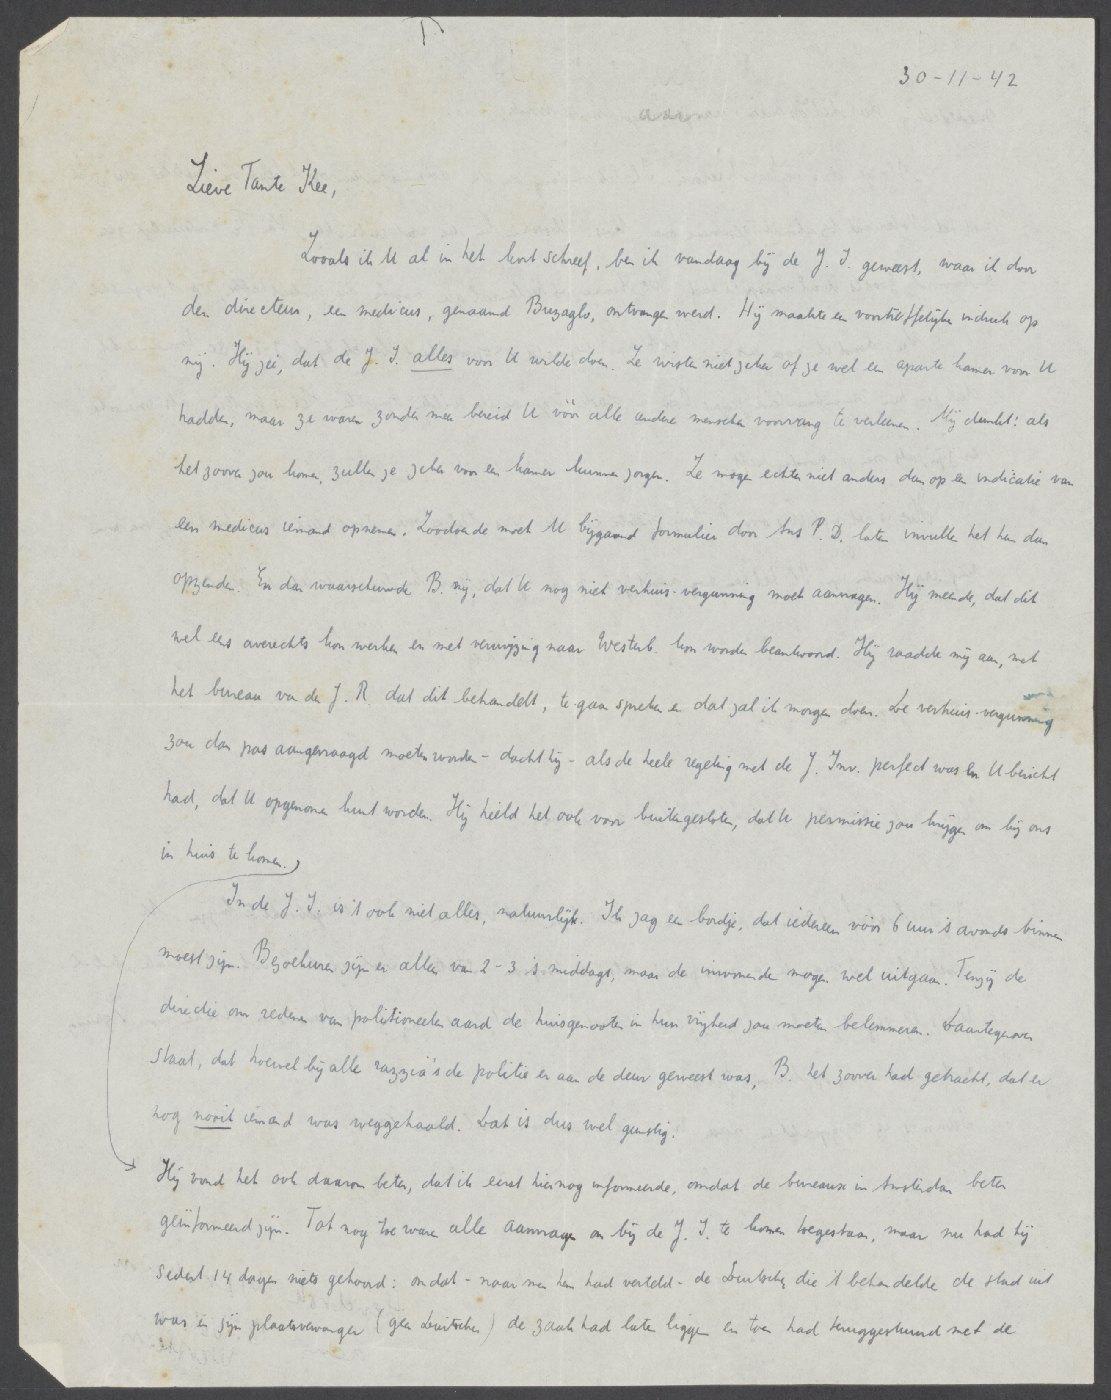 30-11-42
Lieve Tante Kee,
Zooals ik U al in het kort schreef, ben ik vandaag bij de J. I. geweest, waar ik door
den directeur, een medicus, genaamd Buzaglo, ontvangen werd. Hij maakte een voortreffelijken indruk op
mij. Hij zei, dat de J. I. alles voor U wilde doen. Ze wisten niet zeker of ze wel een aparte kamer voor U
hadden, maar ze waren zonder meer bereid U vóór alle andere menschen voorrang te verleenen. Mij dunkt: als
het zoover zou komen, zullen ze zeker voor een kamer kunnen zorgen. Ze mogen echter niet anders dan op een indicatie van
een medicus iemand opnemen. Zoodoende moet U bijgaand formulier door Ans P. D. laten invullen het hem dan
opzenden. En dan waarschuwde B. mij, dat U nog niet verhuis-vergunning moet aanvragen. Hij meende, dat dit
wel eens averechts kon werken en met verwijzing naar Westerb. kon worden beantwoord. Hij raadde mij aan, met
het bureau van den J. R. dat dit behandelt, te gaan spreken en dat zal ik morgen doen. De verhuis-vergunning
zou dan pas aangevraagd moeten worden - dacht hij - als de heele regeling met de J. Inv. perfect was en U bericht
had, dat U opgenomen kunt worden. Hij hield het ook voor buitengesloten, dat U permissie zou krijgen om bij ons
in huis te komen.
In de J. I. is 't ook niet alles, natuurlijk. Ik zag een bordje, dat iedereen vóór 6 uur 's avonds binnen
moest zijn. Bezoekuren zijn er alleen van 2-3 's middags, maar de inwonenden mogen wel uitgaan. Tenzij de
directie om redenen van politioneelen aard de huisgenooten in hun vrijheid zou moeten belemmeren. Daartegenover
staat, dat hoewel bij alle razzia's de politie er aan de deur geweest was, B. het zoover had gebracht, dat er
nog nooit iemand was weggehaald. Dat is dus wel gunstig.
Hij vond het ook daarom beter, dat ik eerst hier nog informeerde, omdat de bureaux in Amsterdam beter
geïnformeerd zijn. Tot nog toe waren alle aanvragen om bij de J. I. te komen toegestaan, maar nu had hij
sedert 14 dagen niets gehoord: omdat - naar men hem had verteld - de Duitscher die 't behandelde de stad uit
was en zijn plaatsvervanger (geen Duitscher) de zaak had laten liggen en toen had teruggestuurd met de